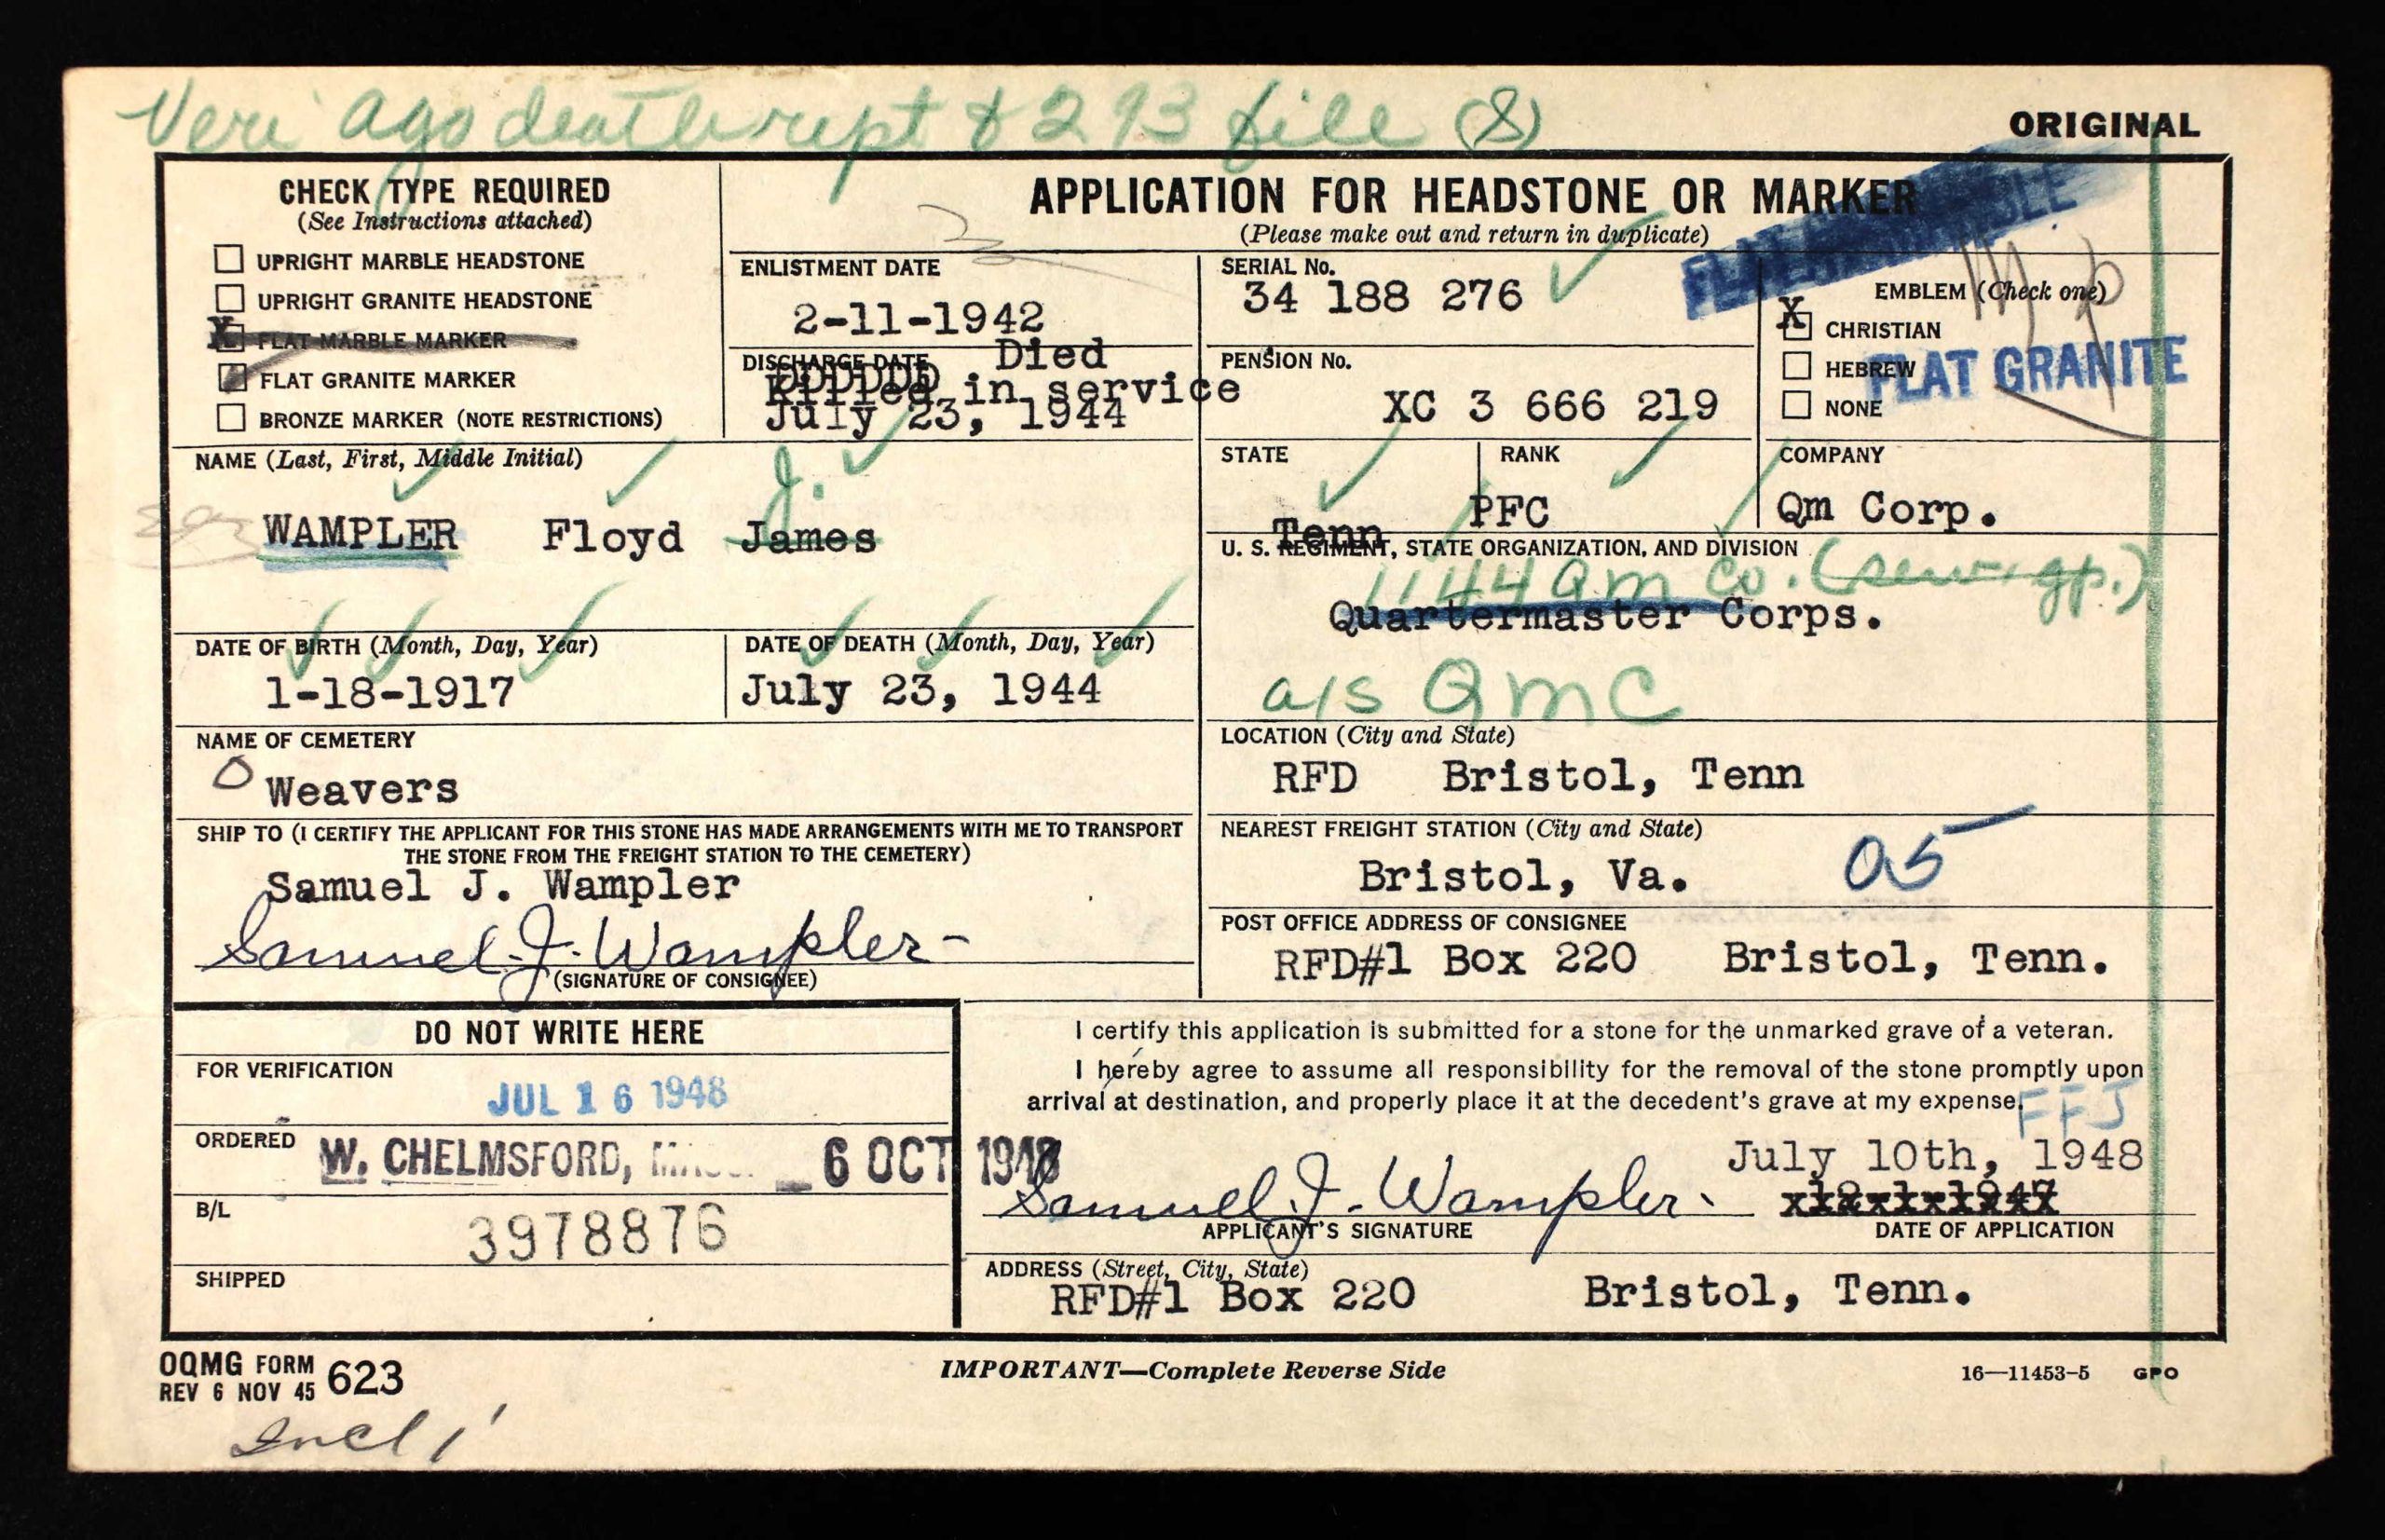 Veri ago death rept & 293 file (S)
ORIGINAL
CHECK TYPE REQUIRED
(See Instructions attached)
UPRIGHT MARBLE HEADSTONE
UPRIGHT GRANITE HEADSTONE
X FLAT MARBLE MARKER
FLAT GRANITE MARKER
BRONZE MARKER (NOTE RESTRICTIONS)
APPLICATION FOR HEADSTONE OR MARKER
(Please make out and return in duplicate)
ENLISTMENT DATE
2-11-1942
DISCHARGE DATE Died
Killed in service
July 23, 1944
SERIAL No.
34 188 276
PENSION No.
XC 3 666 219
EMBLEM (Check one)
X CHRISTIAN
HEBREW
NONE
FLAT GRANITE
NAME (Last, First, Middle Initial)
J.
WAMPLER Floyd James
STATE
Tenn
RANK
PFC
COMPANY
Qm Corp.
U. S. REGIMENT, STATE ORGANIZATION, AND DIVISION
1144 Qm Co. (serv. gp.)
Quartermaster Corps.
a/s QMC
DATE OF BIRTH (Month, Day, Year)
1-18-1917
DATE OF DEATH (Month, Day, Year)
July 23, 1944
NAME OF CEMETERY
Weavers
LOCATION (City and State)
RFD Bristol, Tenn
SHIP TO (I CERTIFY THE APPLICANT FOR THIS STONE HAS MADE ARRANGEMENTS WITH ME TO TRANSPORT
THE STONE FROM THE FREIGHT STATION TO THE CEMETERY)
Samuel J. Wampler
Samuel J. Wampler
(SIGNATURE OF CONSIGNEE)
NEAREST FREIGHT STATION (City and State)
Bristol, Va.
05
POST OFFICE ADDRESS OF CONSIGNEE
RFD#1 Box 220 Bristol, Tenn.
DO NOT WRITE HERE
FOR VERIFICATION
JUL 16 1948
ORDERED
W. CHELMSFORD, 6 OCT 1948
B/L
3978876
SHIPPED
I certify this application is submitted for a stone for the unmarked grave of a veteran.
I hereby agree to assume all responsibility for the removal of the stone promptly upon
arrival at destination, and properly place it at the decedent's grave at my expense.
FFJ
July 10th, 1948
Samuel J. Wampler. 12-1-1947
APPLICANT'S SIGNATURE DATE OF APPLICATION
ADDRESS (Street, City, State)
RFD#1 Box 220 Bristol, Tenn.
OQMG FORM 623
REV 6 NOV 45
IMPORTANT—Complete Reverse Side
16—11453-5 GPO
Incl 1